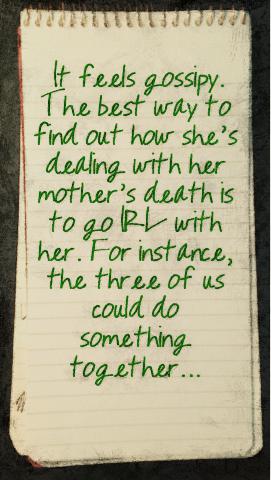 It feels gossipy.
The best way to
find out how she's
dealing with her
mother's death is
to go IRL with
her. For instance,
the three of us
could do
something
together...